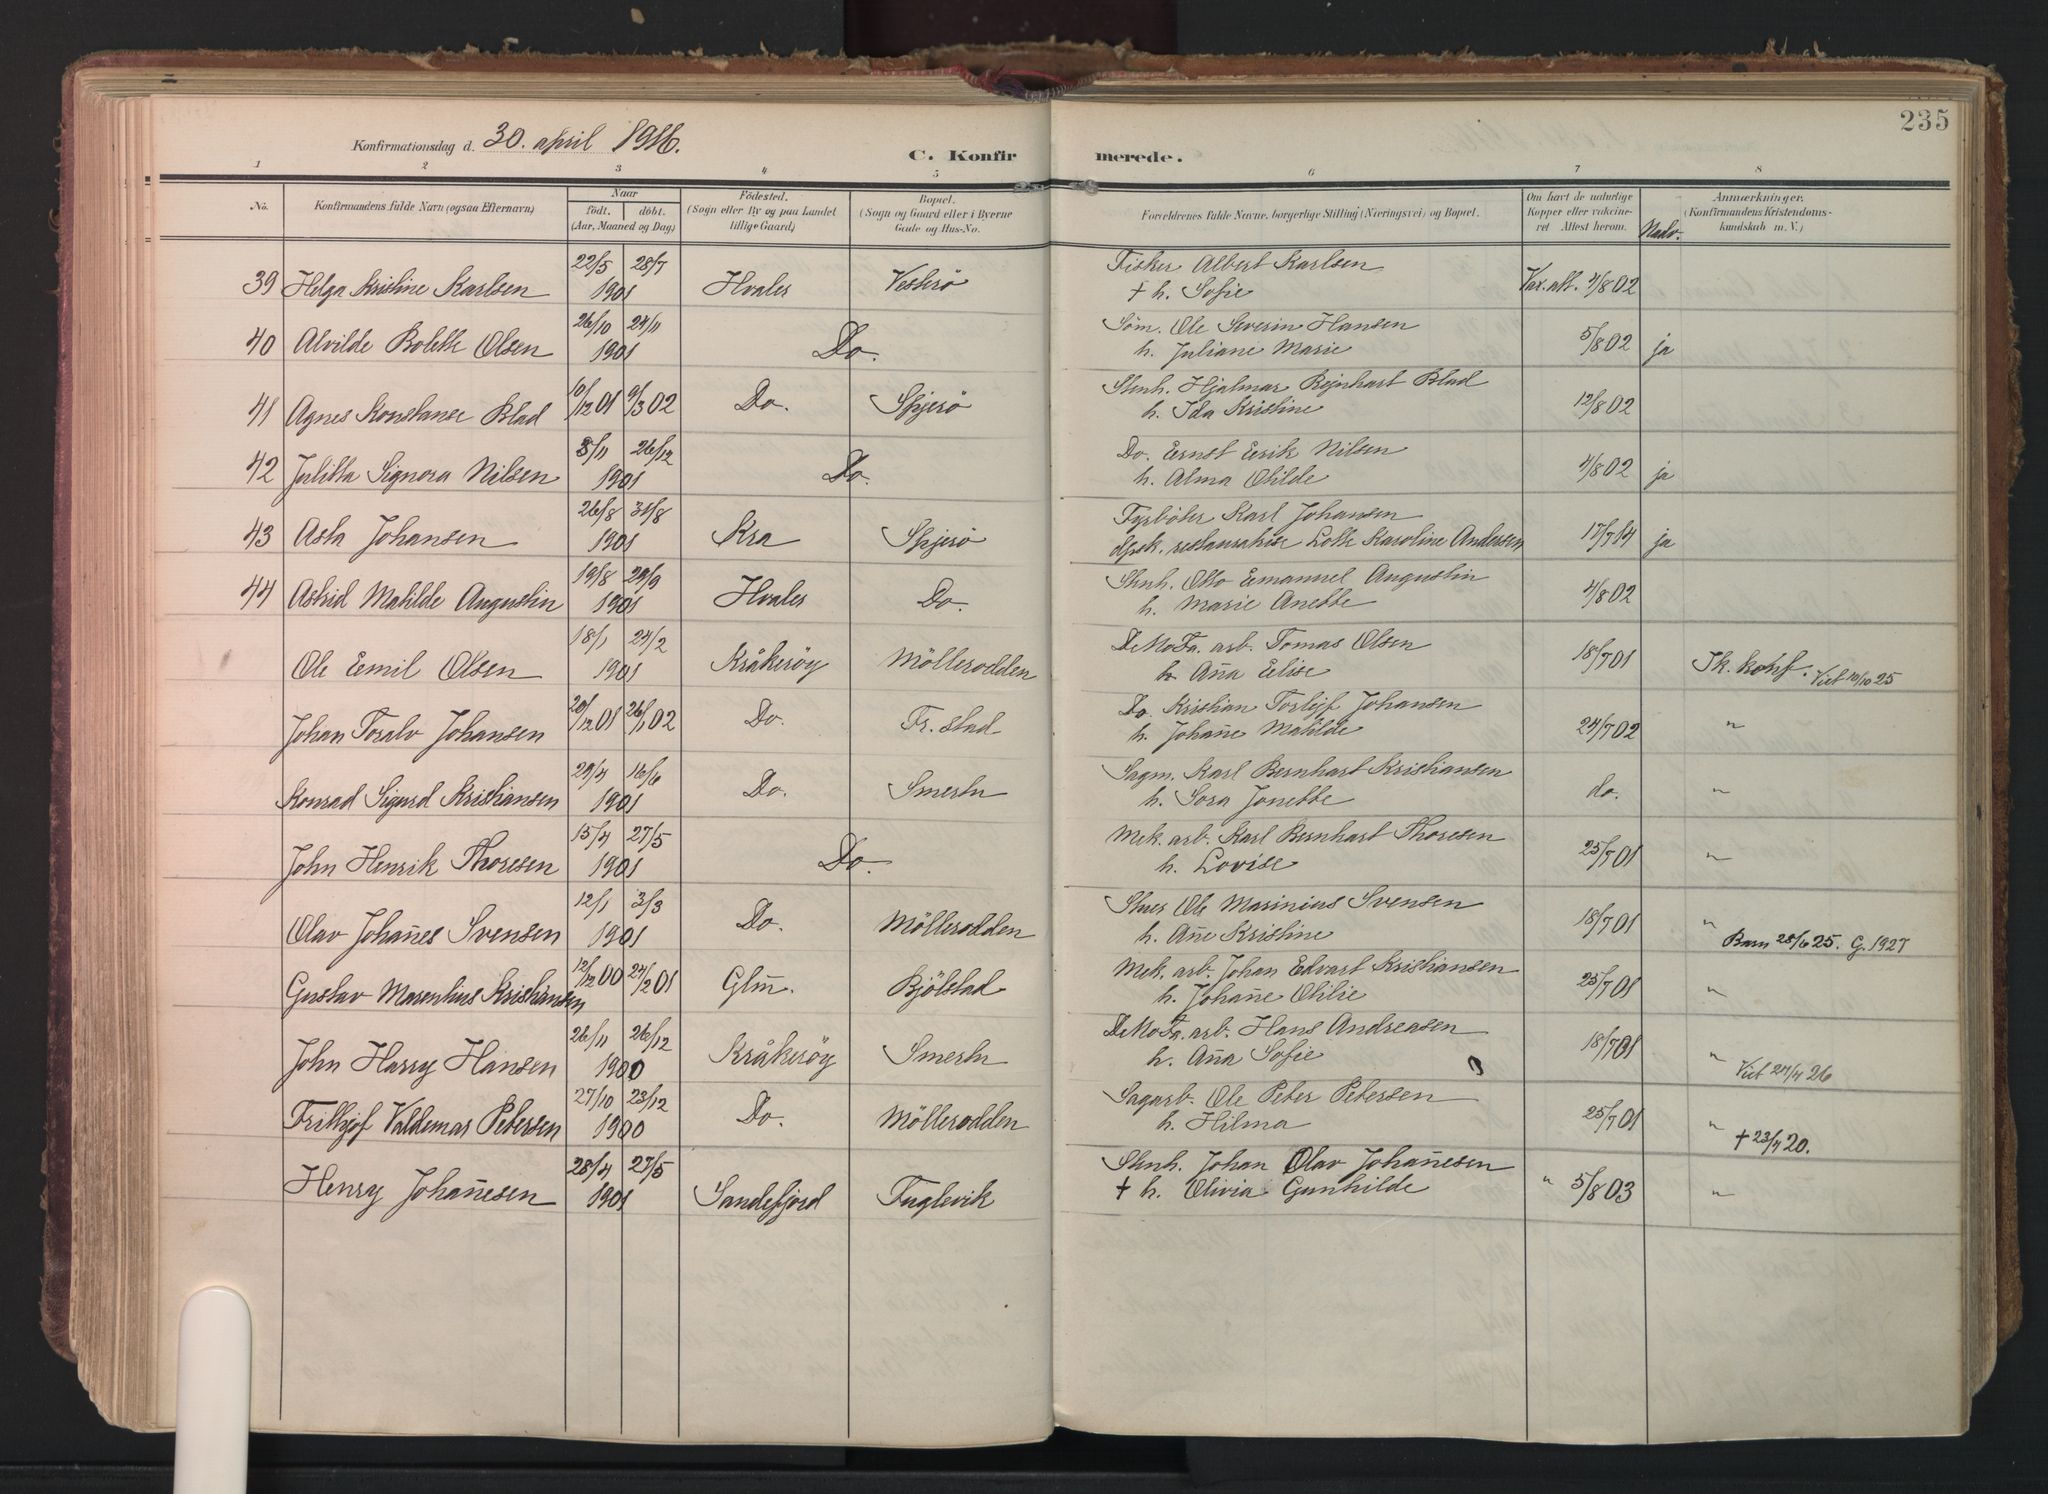 235
Konfirmationsdag d. 30. april 1916.
C. Konfirmerede.
1 2 3 4 5 6 7 8
No. Konfirmandens fulde Navn (ogsaa Efternavn) Naar födt. döbt. (Aar, Maaned og Dag) Födested. (Sogn eller By og paa Landet tillige Gaard) Bopæl. (Sogn og Gaard eller i Byerne Gade og Hus-No. Forældrenes fulde Navne, borgerlige Stilling (Næringsvei) og Bopæl. Om havt de naturlige Kopper eller vakcineret Attest herom. Nadv. Anmærkninger. (Konfirmandens Kristendomskundskab m. V.)
39 Helga Kristine Karlsen 22/5 28/7 1901 Hvaler Vesterö Fisker Albert Karlsen
† h. Sofie Vax. att. 4/8 02
40 Alvilde Bolette Olsen 26/10 24/11 1901 Do. Söm. Ole Severin Hansen
h. Juliane Marie 5/8 02 ja
41 Agnes Konstanse Blad 10/12 01 9/3 02 Do. Spjerö Stenh. Hjalmar Rejnhart Blad
h. Ida Kristine 12/8 02
42 Julitta Signora Nilsen 3/11 26/12 1901 Do. Do. Ernst Eerik Nilsen
h. Alma Otilde 4/8 02 ja
43 Asta Johansen 26/8 31/8 1901 Kra Spjerö Fyrböter Karl Johansen
restauratrise Lotte Karoline Andersen 17/7 14 ja
44 Astrid Matilde Augustin 19/8 29/9 1901 Hvaler Do. Stenh. Otto Eemanuel Augustin
h. Marie Anette 4/8 02
Ole Eemil Olsen 18/1 24/2 1901 Kråkeröy Möllerodden DeNoFa. arb. Tomas Olsen
h. Aña Eelise 18/7 01 Ik. konf. Viet 10/10 25
Johan Toralv Johansen 20/12 01 26/1 02 Do. Fr.stad Do. Kristian Torlejf Johansen
h. Johañe Matilde 24/7 02 "
Konrad Sigurd Kristiansen 29/4 16/6 1901 Do. Smertu Sagm. Karl Bernhart Kristiansen
h. Sora Jonette do. "
John Henrik Thoresen 15/4 27/5 1901 Do. Mek. arb. Karl Bernhart Thoresen
h. Lovise 25/7 01 "
Olav Johañes Svensen 12/1 3/3 1901 Do. Möllerodden Stuer Ole Marinius Svensen
h. Añe Kristine 18/7 01 " Barn 28/6 25. G. 1927
Gustav Marentius Kristiansen 12/12 00 24/2 01 Glm̃. Bjölstad Mek. arb. Johan Edvart Kristiansen
h. Johañe Otilie 25/7 01 "
John Harry Hansen 26/11 26/12 1900 Kråkeröy Smertu DeNoFa. arb. Hans Andreasen
h. Aña Sofie 18/7 01 " Viet 24/4 26
Frithjof Valdemar Petersen 27/10 23/12 1900 Do. Möllerodden Sagarb. Ole Peter Petersen
h. Hilma 25/7 01 " † 23/4 20.
Henry Johañesen 28/4 27/5 1901 Sandefjord Fuglevik Stenh. Johan Olav Johañesen
† h. Olivia Gunhilde " 5/8 03 "